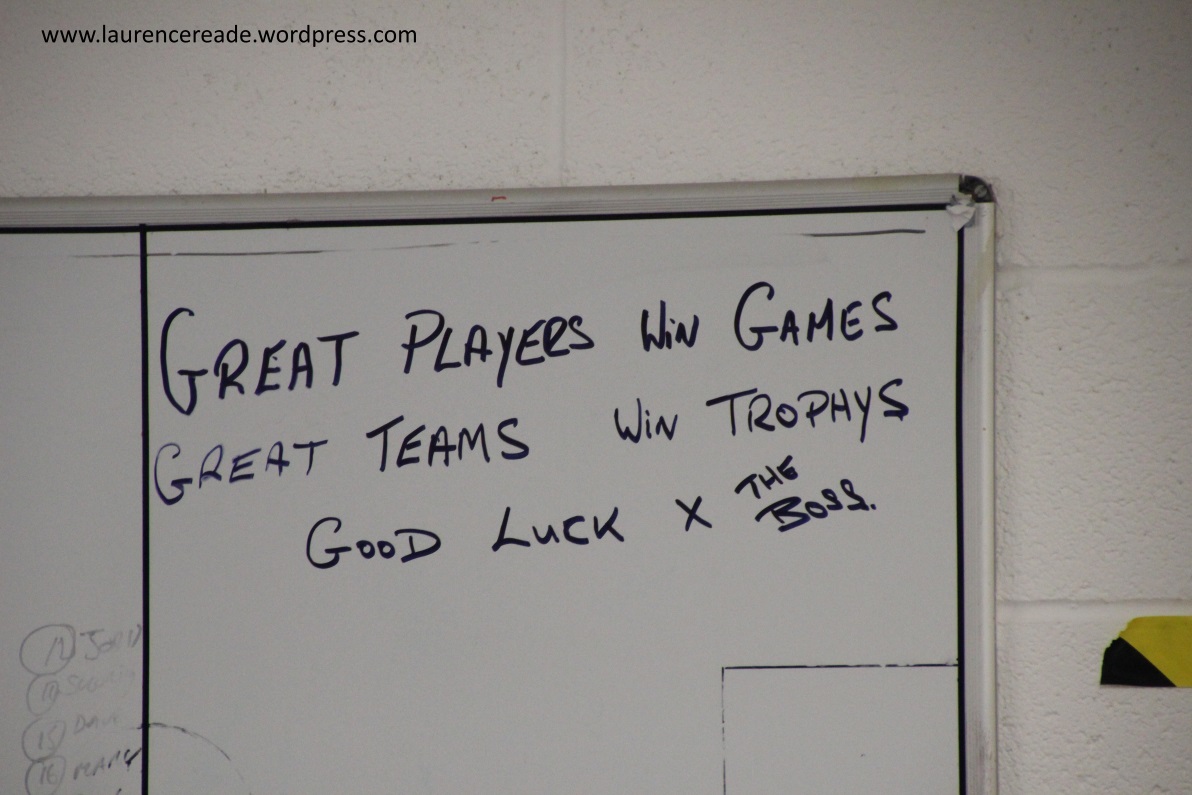 www.laurencereade.wordpress.com
GREAT PLAYERS WIN GAMES
GREAT TEAMS WIN TROPHYS
GOOD LUCK X THE BOSS.
15 DAVE